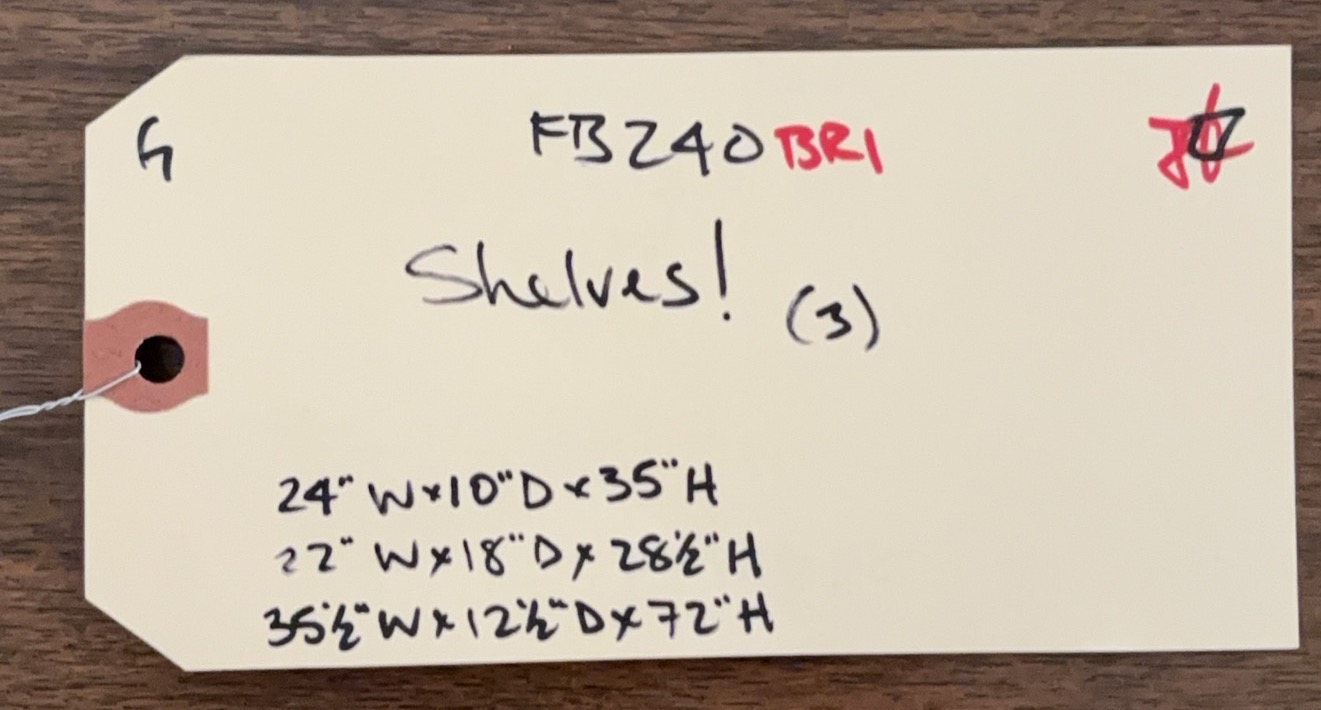 G FB240BR1
Shelves! (3)
24" W x 10" D x 35" H
22" W x 18" D x 28½" H
35½" W x 12½" D x 72" H